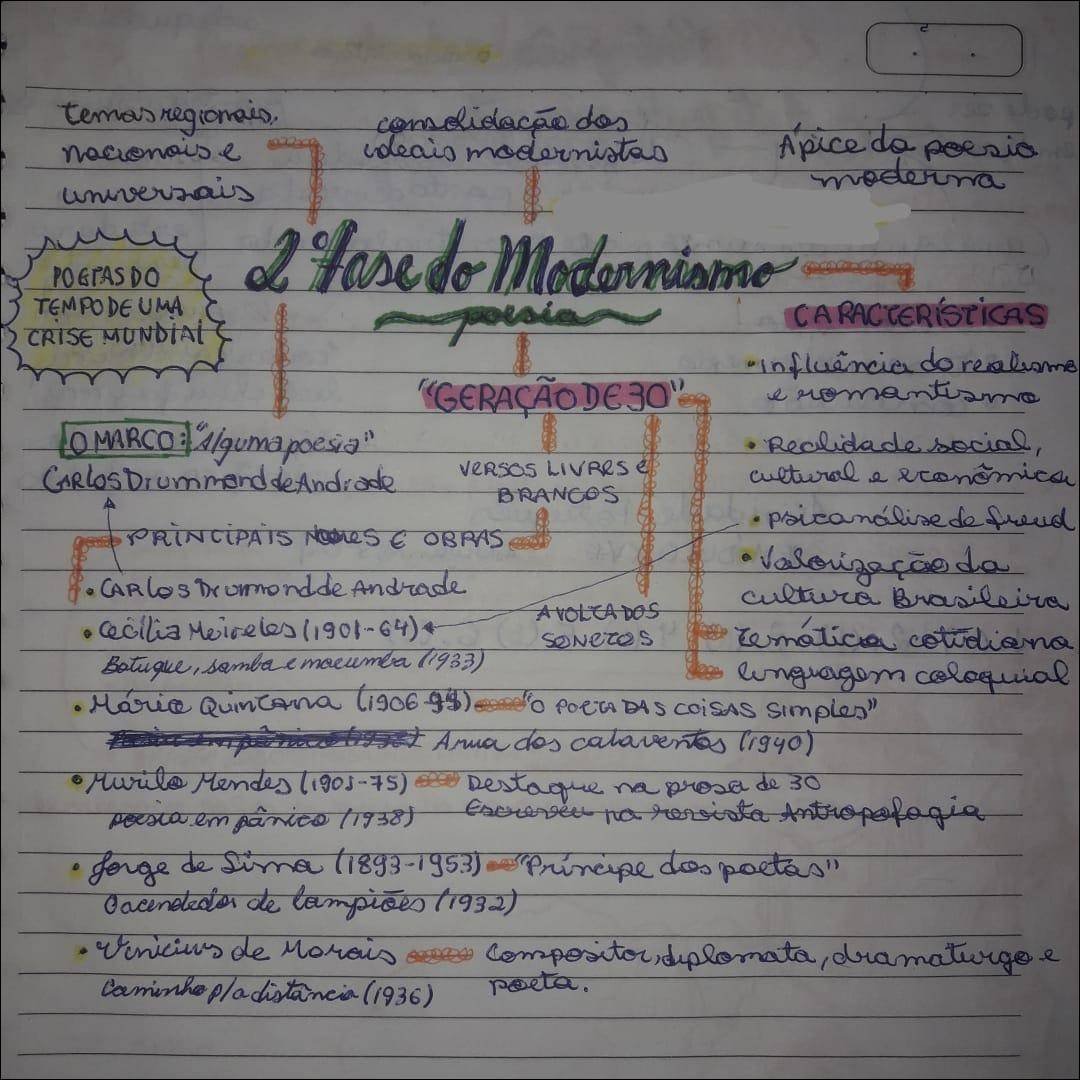 temas regionais,
nacionais e
universais
consolidação dos
ideais modernistas
Ápice da poesia
moderna
2ª fase do Modernismo
poesia
POETAS DO
TEMPO DE UMA
CRISE MUNDIAL
CARACTERÍSTICAS
• Influência do realismo
e romantismo
• Realidade social,
cultural e econômica
• psicanálise de freud
• Valorização da
cultura Brasileira
"GERAÇÃO DE 30"
temática cotidiana
linguagem coloquial
VERSOS LIVRES E
BRANCOS
A VOLTA DOS
SONETOS
O MARCO: "Alguma poesia"
CARLOS Drummond de Andrade
PRINCIPAIS NOMES E OBRAS
• CARLOS Drumond de Andrade
• Cecília Meireles (1901-64)
Batuque, samba e macumba (1933)
• Mário Quintana (1906-94) "O POETA DAS COISAS simples"
A rua dos cataventos (1940)
• Murilo Mendes (1901-75) Destaque na prosa de 30
poesia em pânico (1938) Escreveu na revista Antropofagia
• Jorge de Lima (1893-1953) "Príncipe dos poetas"
O acendedor de lampiões (1932)
• Vinicius de Morais Compositor, diplomata, dramaturgo e
poeta.
Caminho p/ a distância (1936)